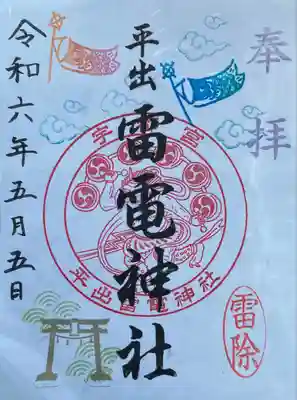 奉拝
平出
雷電神社
宇都宮
平出雷電神社
雷除
令和六年五月五日